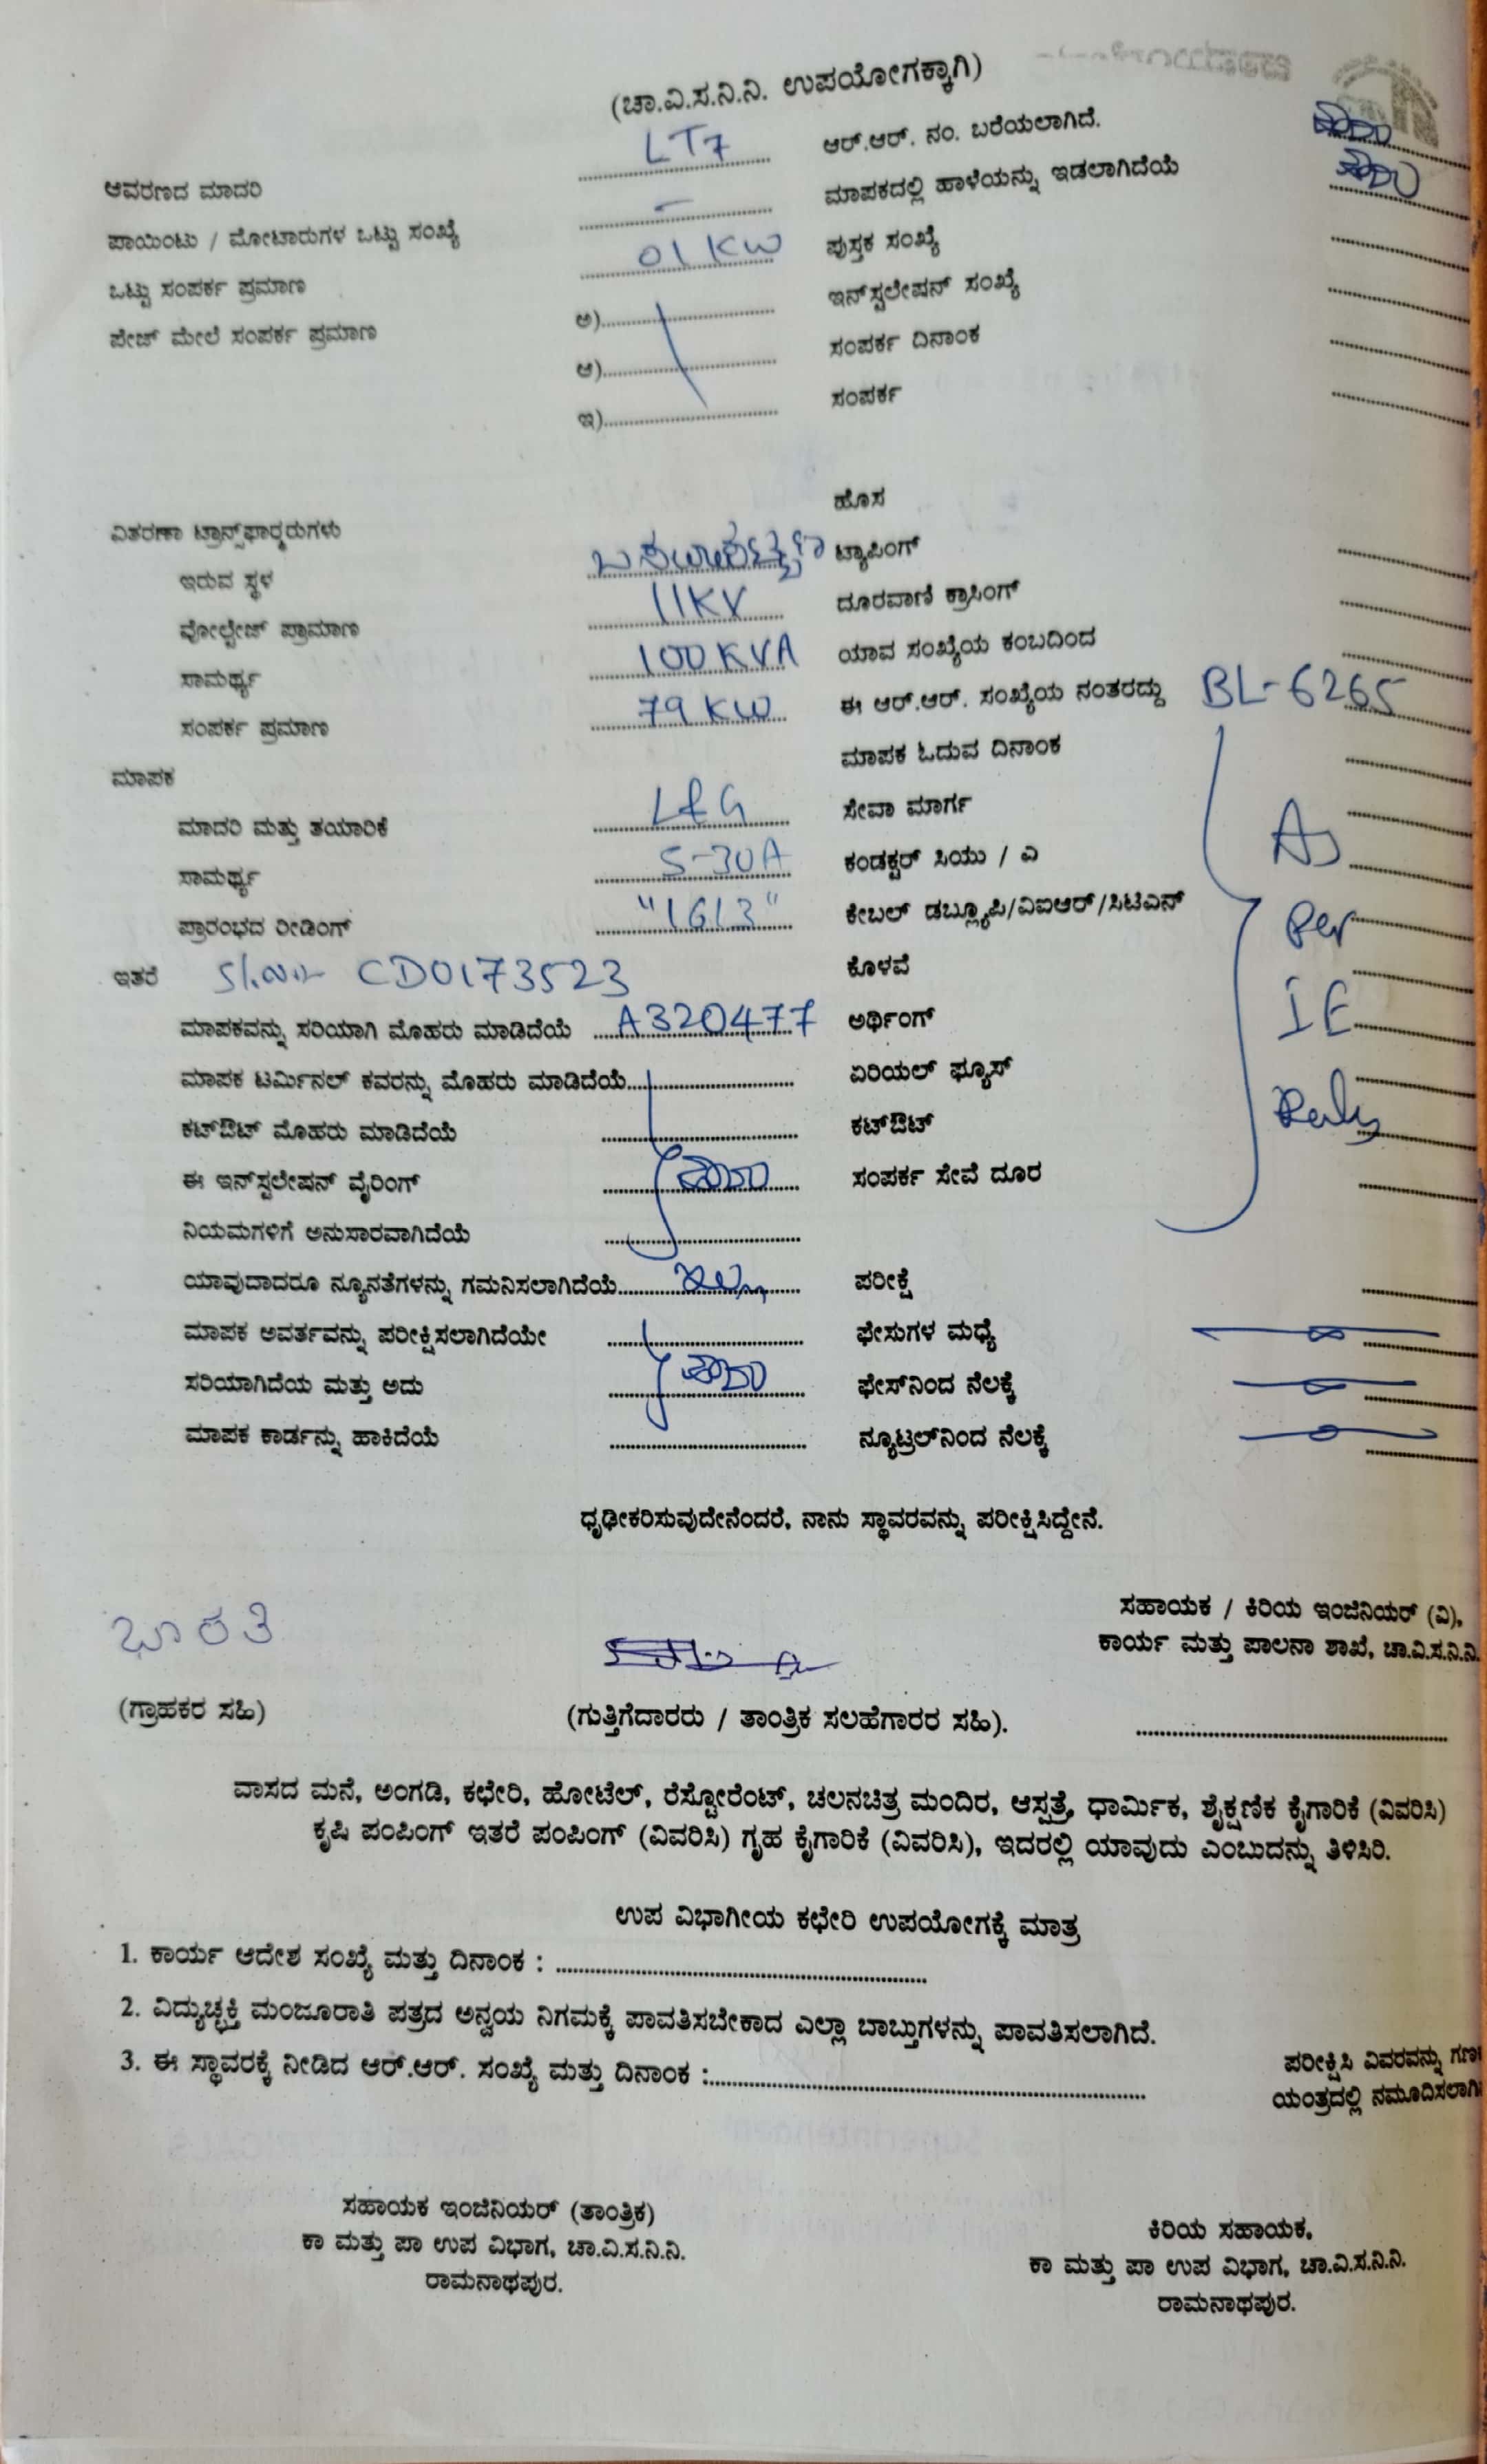 (ಚಾ.ವಿ.ಸ.ನಿ.ನಿ. ಉಪಯೋಗಕ್ಕಾಗಿ)
ಆವರಣದ ಮಾದರಿ LT7 ಆರ್.ಆರ್. ನಂ. ಬರೆಯಲಾಗಿದೆ. ಹೌದು
ಪಾಯಿಂಟು / ಮೋಟಾರುಗಳ ಒಟ್ಟು ಸಂಖ್ಯೆ - ಮಾಪಕದಲ್ಲಿ ಹಾಳೆಯನ್ನು ಇಡಲಾಗಿದೆಯೆ ಹೌದು
ಒಟ್ಟು ಸಂಪರ್ಕ ಪ್ರಮಾಣ 01 KW ಪುಸ್ತಕ ಸಂಖ್ಯೆ
ಪೇಜ್ ಮೇಲೆ ಸಂಪರ್ಕ ಪ್ರಮಾಣ ಅ) ಇನ್‌ಸ್ಟಲೇಷನ್ ಸಂಖ್ಯೆ
ಆ) ಸಂಪರ್ಕ ದಿನಾಂಕ
ಇ) ಸಂಪರ್ಕ
ಹೊಸ
ವಿತರಣಾ ಟ್ರಾನ್ಸ್‌ಫಾರ್ಮರುಗಳು
ಇರುವ ಸ್ಥಳ ಟ್ಯಾಪಿಂಗ್
ವೋಲ್ಟೇಜ್ ಪ್ರಾಮಾಣ 11KV ದೂರವಾಣಿ ಕ್ರಾಸಿಂಗ್
ಸಾಮರ್ಥ್ಯ 100 KVA ಯಾವ ಸಂಖ್ಯೆಯ ಕಂಬದಿಂದ
ಸಂಪರ್ಕ ಪ್ರಮಾಣ 79 KW ಈ ಆರ್.ಆರ್. ಸಂಖ್ಯೆಯ ನಂತರದ್ದು BL-6265
ಮಾಪಕ ಮಾಪಕ ಓದುವ ದಿನಾಂಕ
ಮಾದರಿ ಮತ್ತು ತಯಾರಿಕೆ L&G ಸೇವಾ ಮಾರ್ಗ As
ಸಾಮರ್ಥ್ಯ 5-30A ಕಂಡಕ್ಟರ್ ಸಿಯು / ಎ
ಪ್ರಾರಂಭದ ರೀಡಿಂಗ್ "1613" ಕೇಬಲ್ ಡಬ್ಲ್ಯೂಪಿ/ವಿಐಆರ್/ಸಿಟಿಎಸ್ Per
ಇತರೆ Sl.No:- CD0173523 ಕೊಳವೆ
ಮಾಪಕವನ್ನು ಸರಿಯಾಗಿ ಮೊಹರು ಮಾಡಿದೆಯೆ A320477 ಅರ್ಥಿಂಗ್ IE
ಮಾಪಕ ಟರ್ಮಿನಲ್ ಕವರನ್ನು ಮೊಹರು ಮಾಡಿದೆಯೆ ಏರಿಯಲ್ ಫ್ಯೂಸ್
ಕಟ್‌ಔಟ್ ಮೊಹರು ಮಾಡಿದೆಯೆ ಕಟ್‌ಔಟ್ Rules
ಈ ಇನ್‌ಸ್ಟಲೇಷನ್ ವೈರಿಂಗ್ ಹೌದು ಸಂಪರ್ಕ ಸೇವೆ ದೂರ
ನಿಯಮಗಳಿಗೆ ಅನುಸಾರವಾಗಿದೆಯೆ
ಯಾವುದಾದರೂ ನ್ಯೂನತೆಗಳನ್ನು ಗಮನಿಸಲಾಗಿದೆಯೆ ಇಲ್ಲ ಪರೀಕ್ಷೆ
ಮಾಪಕ ಅವರ್ತವನ್ನು ಪರೀಕ್ಷಿಸಲಾಗಿದೆಯೇ ಫೇಸುಗಳ ಮಧ್ಯೆ
ಸರಿಯಾಗಿದೆಯ ಮತ್ತು ಅದು ಹೌದು ಫೇಸ್‌ನಿಂದ ನೆಲಕ್ಕೆ
ಮಾಪಕ ಕಾರ್ಡನ್ನು ಹಾಕಿದೆಯೆ ನ್ಯೂಟ್ರಲ್‌ನಿಂದ ನೆಲಕ್ಕೆ
ಧೃಢೀಕರಿಸುವುದೇನೆಂದರೆ, ನಾನು ಸ್ಥಾವರವನ್ನು ಪರೀಕ್ಷಿಸಿದ್ದೇನೆ.
ಸಹಾಯಕ / ಕಿರಿಯ ಇಂಜಿನಿಯರ್ (ವಿ),
ಭಾರತಿ ಕಾರ್ಯ ಮತ್ತು ಪಾಲನಾ ಶಾಖೆ, ಚಾ.ವಿ.ಸ.ನಿ.ನಿ.
(ಗ್ರಾಹಕರ ಸಹಿ) (ಗುತ್ತಿಗೆದಾರರು / ತಾಂತ್ರಿಕ ಸಲಹೆಗಾರರ ಸಹಿ).
ವಾಸದ ಮನೆ, ಅಂಗಡಿ, ಕಛೇರಿ, ಹೋಟೆಲ್, ರೆಸ್ಟೋರೆಂಟ್, ಚಲನಚಿತ್ರ ಮಂದಿರ, ಆಸ್ಪತ್ರೆ, ಧಾರ್ಮಿಕ, ಶೈಕ್ಷಣಿಕ ಕೈಗಾರಿಕೆ (ವಿವರಿಸಿ)
ಕೃಷಿ ಪಂಪಿಂಗ್ ಇತರೆ ಪಂಪಿಂಗ್ (ವಿವರಿಸಿ) ಗೃಹ ಕೈಗಾರಿಕೆ (ವಿವರಿಸಿ), ಇದರಲ್ಲಿ ಯಾವುದು ಎಂಬುದನ್ನು ತಿಳಿಸಿರಿ.
ಉಪ ವಿಭಾಗೀಯ ಕಛೇರಿ ಉಪಯೋಗಕ್ಕೆ ಮಾತ್ರ
1. ಕಾರ್ಯ ಆದೇಶ ಸಂಖ್ಯೆ ಮತ್ತು ದಿನಾಂಕ :
2. ವಿದ್ಯುಚ್ಛಕ್ತಿ ಮಂಜೂರಾತಿ ಪತ್ರದ ಅನ್ವಯ ನಿಗಮಕ್ಕೆ ಪಾವತಿಸಬೇಕಾದ ಎಲ್ಲಾ ಬಾಬ್ತುಗಳನ್ನು ಪಾವತಿಸಲಾಗಿದೆ.
3. ಈ ಸ್ಥಾವರಕ್ಕೆ ನೀಡಿದ ಆರ್.ಆರ್. ಸಂಖ್ಯೆ ಮತ್ತು ದಿನಾಂಕ :
ಪರೀಕ್ಷಿಸಿ ವಿವರವನ್ನು
ಯಂತ್ರದಲ್ಲಿ
ಸಹಾಯಕ ಇಂಜಿನಿಯರ್ (ತಾಂತ್ರಿಕ)
ಕಾ ಮತ್ತು ಪಾ ಉಪ ವಿಭಾಗ, ಚಾ.ವಿ.ಸ.ನಿ.ನಿ.
ರಾಮನಾಥಪುರ.
ಕಿರಿಯ ಸಹಾಯಕ,
ಕಾ ಮತ್ತು ಪಾ ಉಪ ವಿಭಾಗ, ಚಾ.ವಿ.ಸ.ನಿ.ನಿ.
ರಾಮನಾಥಪುರ.